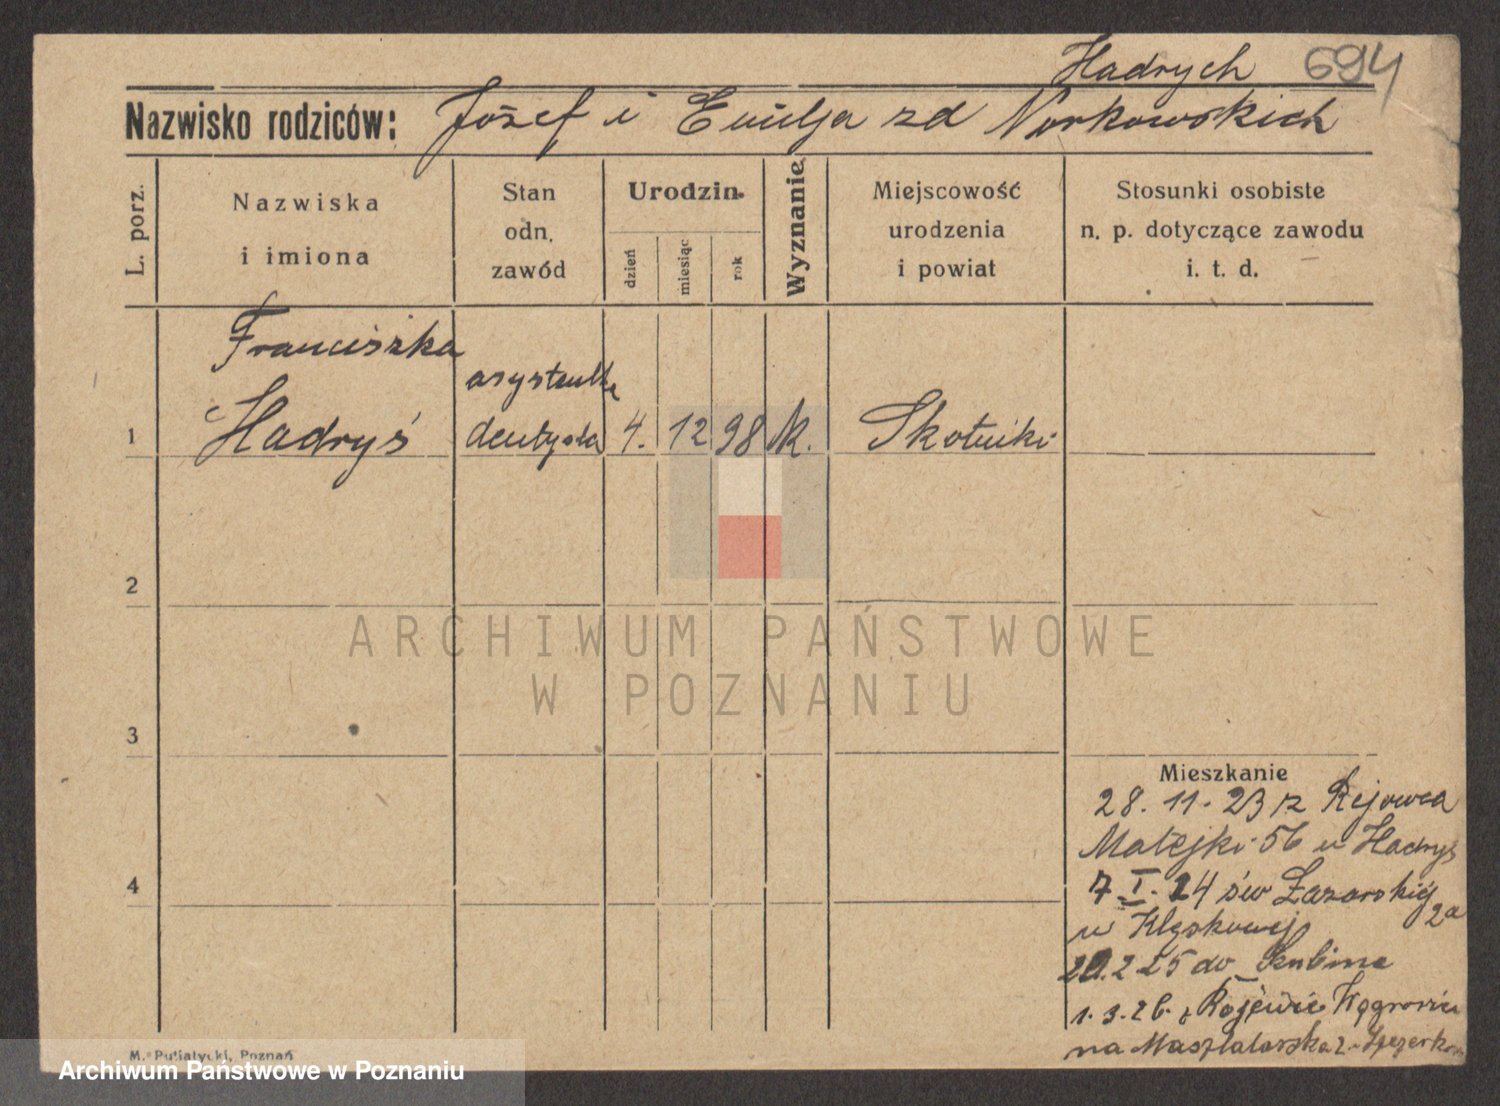 Hadrych 694
Nazwisko rodziców: Józef i Emilja zd Norkowskich
L. porz.
Nazwiska
i imiona
Stan
odn.
zawód
Urodzin
dzień
miesiąc
rok
Wyznanie
Miejscowość
urodzenia
i powiat
Stosunki osobiste
n. p. dotyczące zawodu
i. t. d.
Franciszka
asystentka
1 Hadryś dentysta 4. 12 98 k. Skotniki
2
ARCHIWUM PAŃSTWOWE
W POZNANIU
3
Mieszkanie
28. 11. 23 z Rejowca
Matejki 56 u Hadryś
4
7. I. 24 św Łazarskiej 2a
u Kłęskowej
20. 2 25 do Szubina
1. 3. 26. z
na Masztalarska 2
M. Putiatycki, Poznań
Archiwum Państwowe w Poznaniu